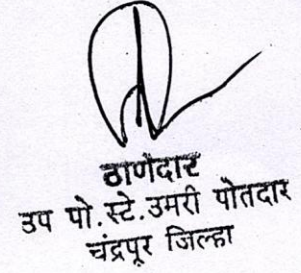 ठाणेदार
उप पो.स्टे.उमरी पोतदार
चंद्रपूर जिल्हा